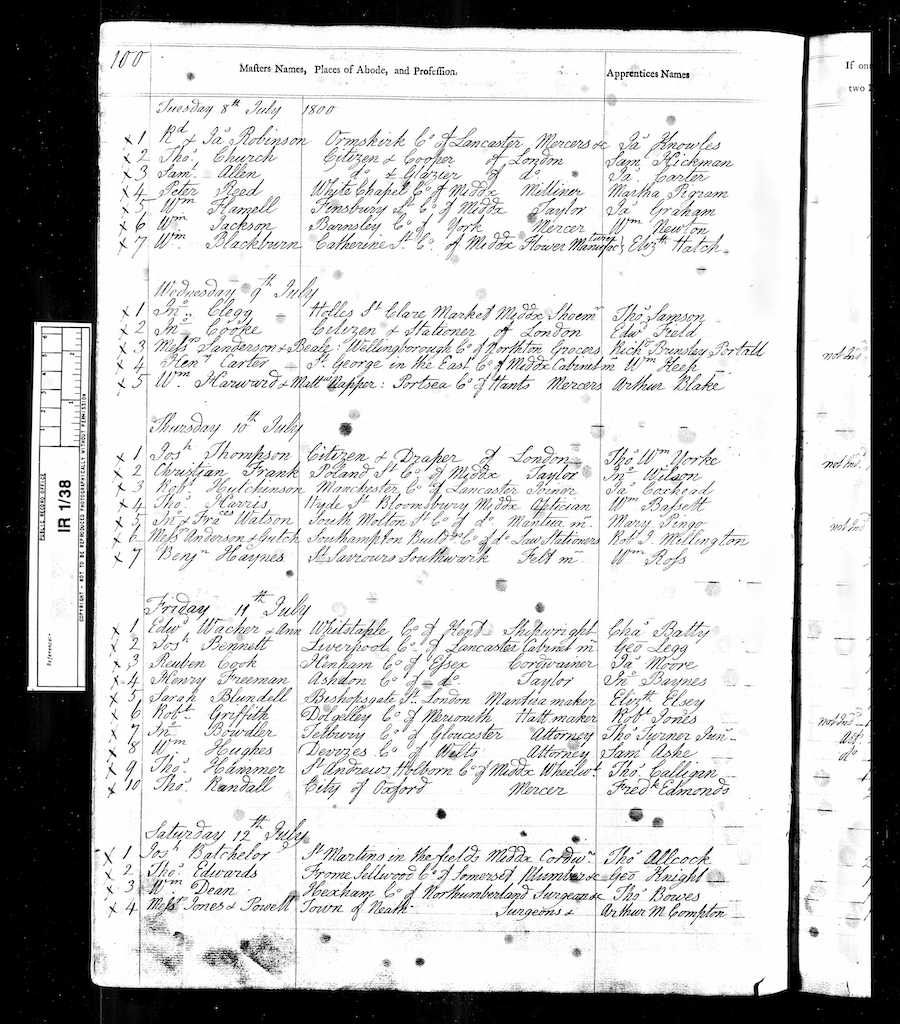 100
Masters Names, Places of Abode, and Profession. Apprentices Names
If on
two
Tuesday 8th July 1800
x 1 Rd & Jas Robinson Ormskirk Co of Lancaster Mercers &c Jas Knowles
x 2 Thos Church Citizen & Cooper of London Saml Hickman
x 3 Saml Allen do & Glazier of do Jas Carter
x 4 Peter Reed White Chapel Co of Middx Milliner Martha Pigram
x 5 Wm Hamell Finsbury St Co of Middx Taylor Jas Graham
x 6 Wm Jackson Barnsley Co of York Mercer Wm Newton
x 7 Wm Blackburn Catherine St Co of Middx Flower Eliz.th Hatch
Wednesday 9th July
x 1 Jno Clegg Holles St Clare Market Middx Shoem Thos Samson
x 2 Jno Cooke Citizen & Stationer of London Edwd Field
x 3 Messrs Sanderson & Beale: Wellingborough Co of Northton Grocers Richd Brinsley Portall
x 4 Heny Carter St George in the East Co of Middx Cabinet m Wm Heep
x 5 Wm Harward & Napper: Portsea Co of Hants Mercers Arthur Blake
Thursday 10th July
x 1 Josh Thompson Citizen & Draper of London Thos Wm Yorke
x 2 Christian Frank Poland St Co of Middx Taylor Jno Wilson
x 3 Robt Hutchinson Manchester Co of Lancaster Joiner Jas Coxhead
x 4 Thos Harris Hyde St Bloomsbury Middx Optician Wm Bassett
x 5 Jno & Fras Watson South Molton St Co of do Mantua m Mary Pingo
x 6 Messrs Anderson & Southampton Co of do Law Stationers Robt J. Millington
x 7 Benjn Haynes St Saviours Southwark Felt m Wm Ross
Friday 11th July
x 1 Edwd Wacher & Ann Whitstaple Co of Kent Shipwright Chas Batty
x 2 Josh Bennett Liverpool Co of Lancaster Cabinet m Geo Legg
x 3 Reuben Cook Henham Co of Essex Cordwainer Jas Moore
x 4 Henry Freeman Ashdon Co of do Taylor Jno Baynes
x 5 Sarah Blundell Bishopsgate St London Mantua maker Elizth Elsey
x 6 Robt Griffith Dolgelley Co of Merioneth Hatt maker Robt Jones
x 7 Jno Bowdler Tetbury Co of Gloucester Attorney Thos Turner Junr
x 8 Wm Hughes Devizes Co of Wilts Attorney Saml Ashe
x 9 Thos Hammer St Andrews Holborn Co of Middx Wheelwt Thos Calligan
x 10 Thos Randall City of Oxford Mercer Fredk Edmonds
Saturday 12th July
x 1 Josh Batchelor St Martins in the fields Middx Cordwr Thos Allcock
x 2 Thos Edwards Frome Sellwood Co of Somerset Plumber &c Geo Knight
x 3 Wm Dean Hexham Co of Northumberland Surgeon &c Thos Bowes
x 4 Messrs Jones & Powell Town of Neath Surgeons & Arthur M. Compton
PUBLIC RECORD OFFICE
IR 1/38
Reference:-
COPYRIGHT - NOT TO BE REPRODUCED PHOTOGRAPHICALLY WITHOUT PERMISSION